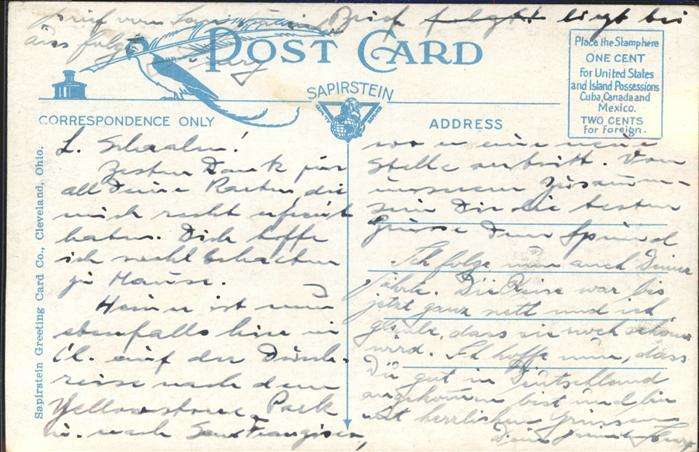 Brief folgt liegt bei
POST CARD
SAPIRSTEIN
CORRESPONDENCE ONLY
ADDRESS
Place the Stamp here
ONE CENT
For United States
and Island Possessions
Cuba, Canada and
Mexico.
TWO CENTS
for Foreign.
Sapirstein Greeting Card Co., Cleveland, Ohio.
L. Schaalm!
Besten Dank für
all Deine Karten, die
mich recht erfreut
haben. Dich hoffe
ich wohlbehalten
zu Hause.
Heiner ist nun
ebenfalls hier in
Ch. auf der Durch-
reise nach dem
Yellowstone Park
u. nach San Francisco,
wo er eine neue
Stelle antritt. Von
unserem Zusamm-
sein Dir die besten
Grüsse Dein Freund
Ich folge nun auch Deiner
Fährte. Die Reise war bis
jetzt ganz nett und ich
glaube, dass sie noch schöner
wird. Ich hoffe nun, dass
Du gut in Deutschland
angekommen bist und bin
mit herzlichen Grüssen
Dein